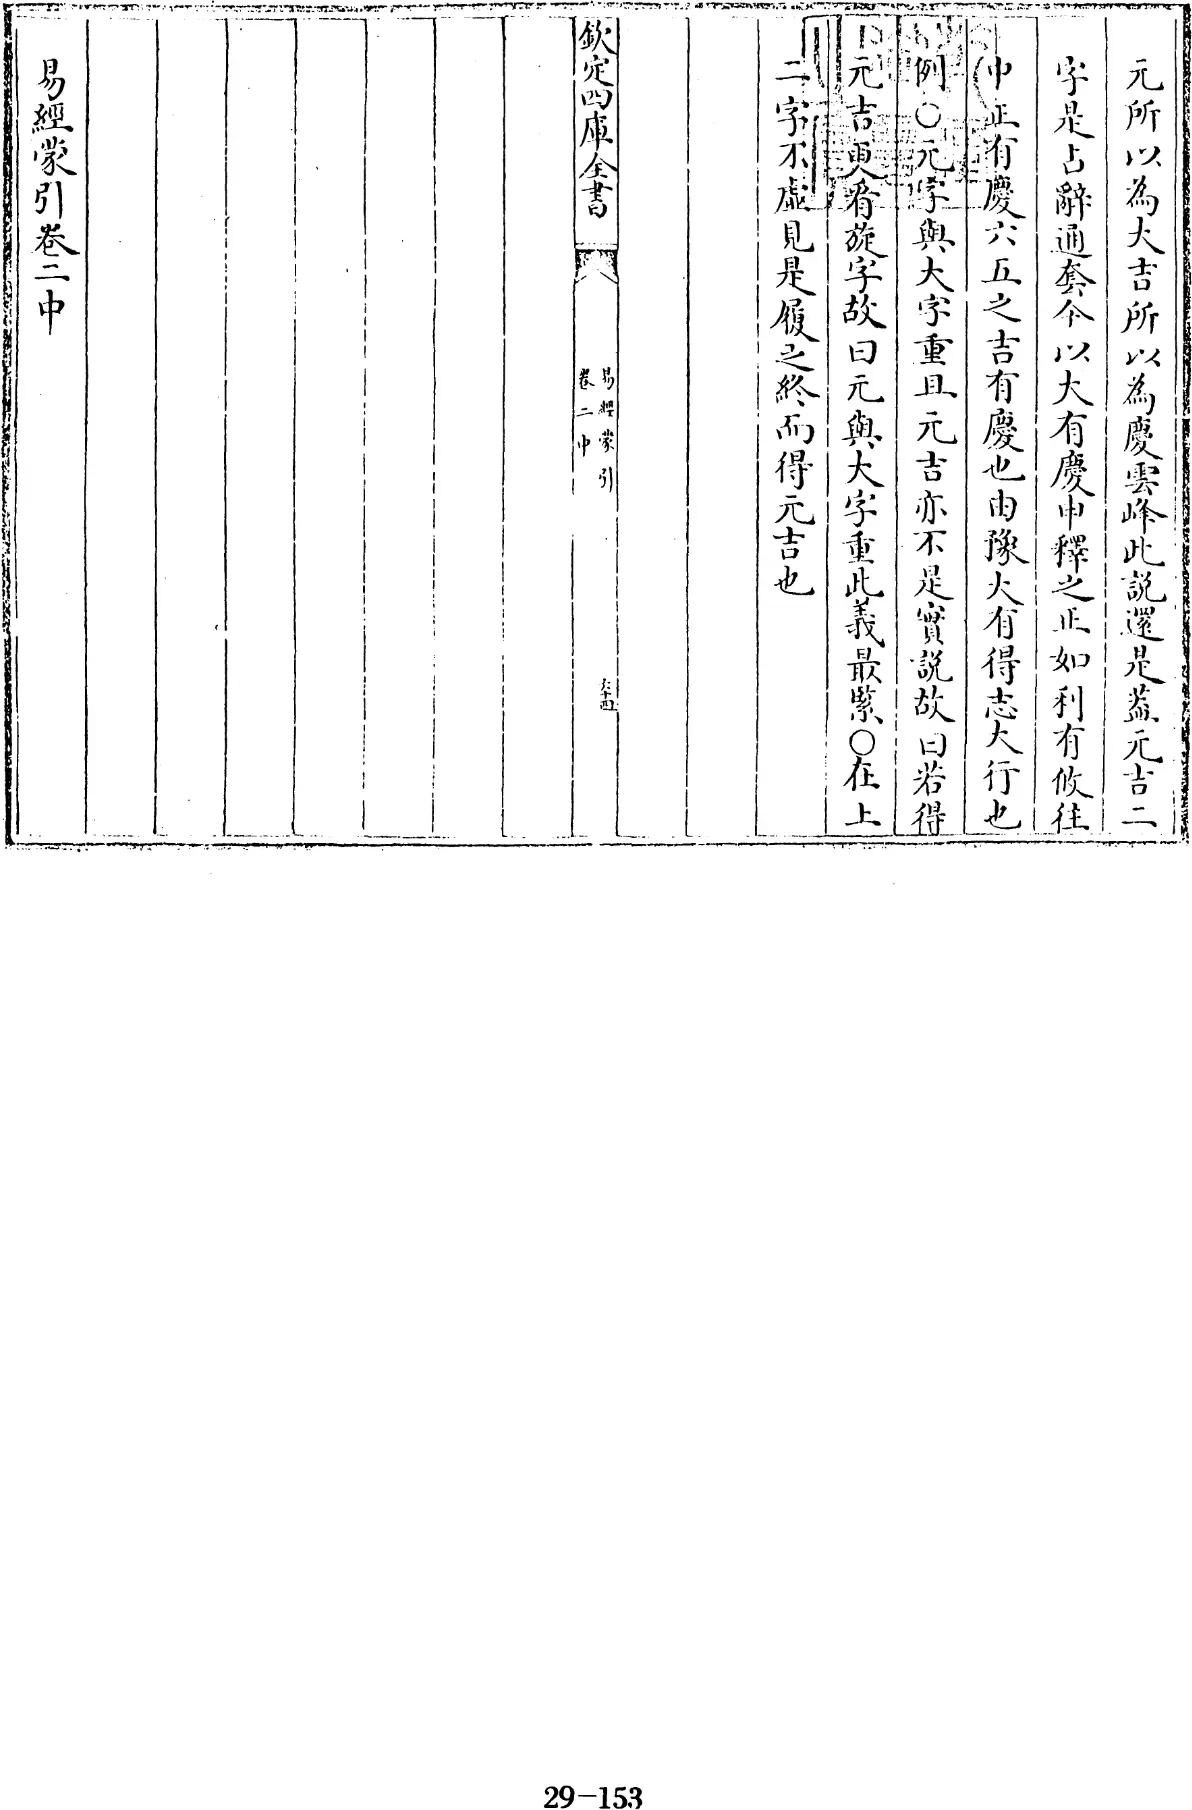 元所以為大吉所以為慶雲峰此説還是葢元吉二
字是占辭通套今以大有慶申釋之正如利有攸往
中正有慶六五之吉有慶也由豫大有得志大行也
例○元字與大字重且元吉亦不是實説故曰若得
元吉更看旋字故曰元與大字重此義最緊○在上
二字不虛見是履之終而得元吉也
欽定四庫全書
易經蒙引
卷二中
六十四
易經蒙引卷二中
29-153